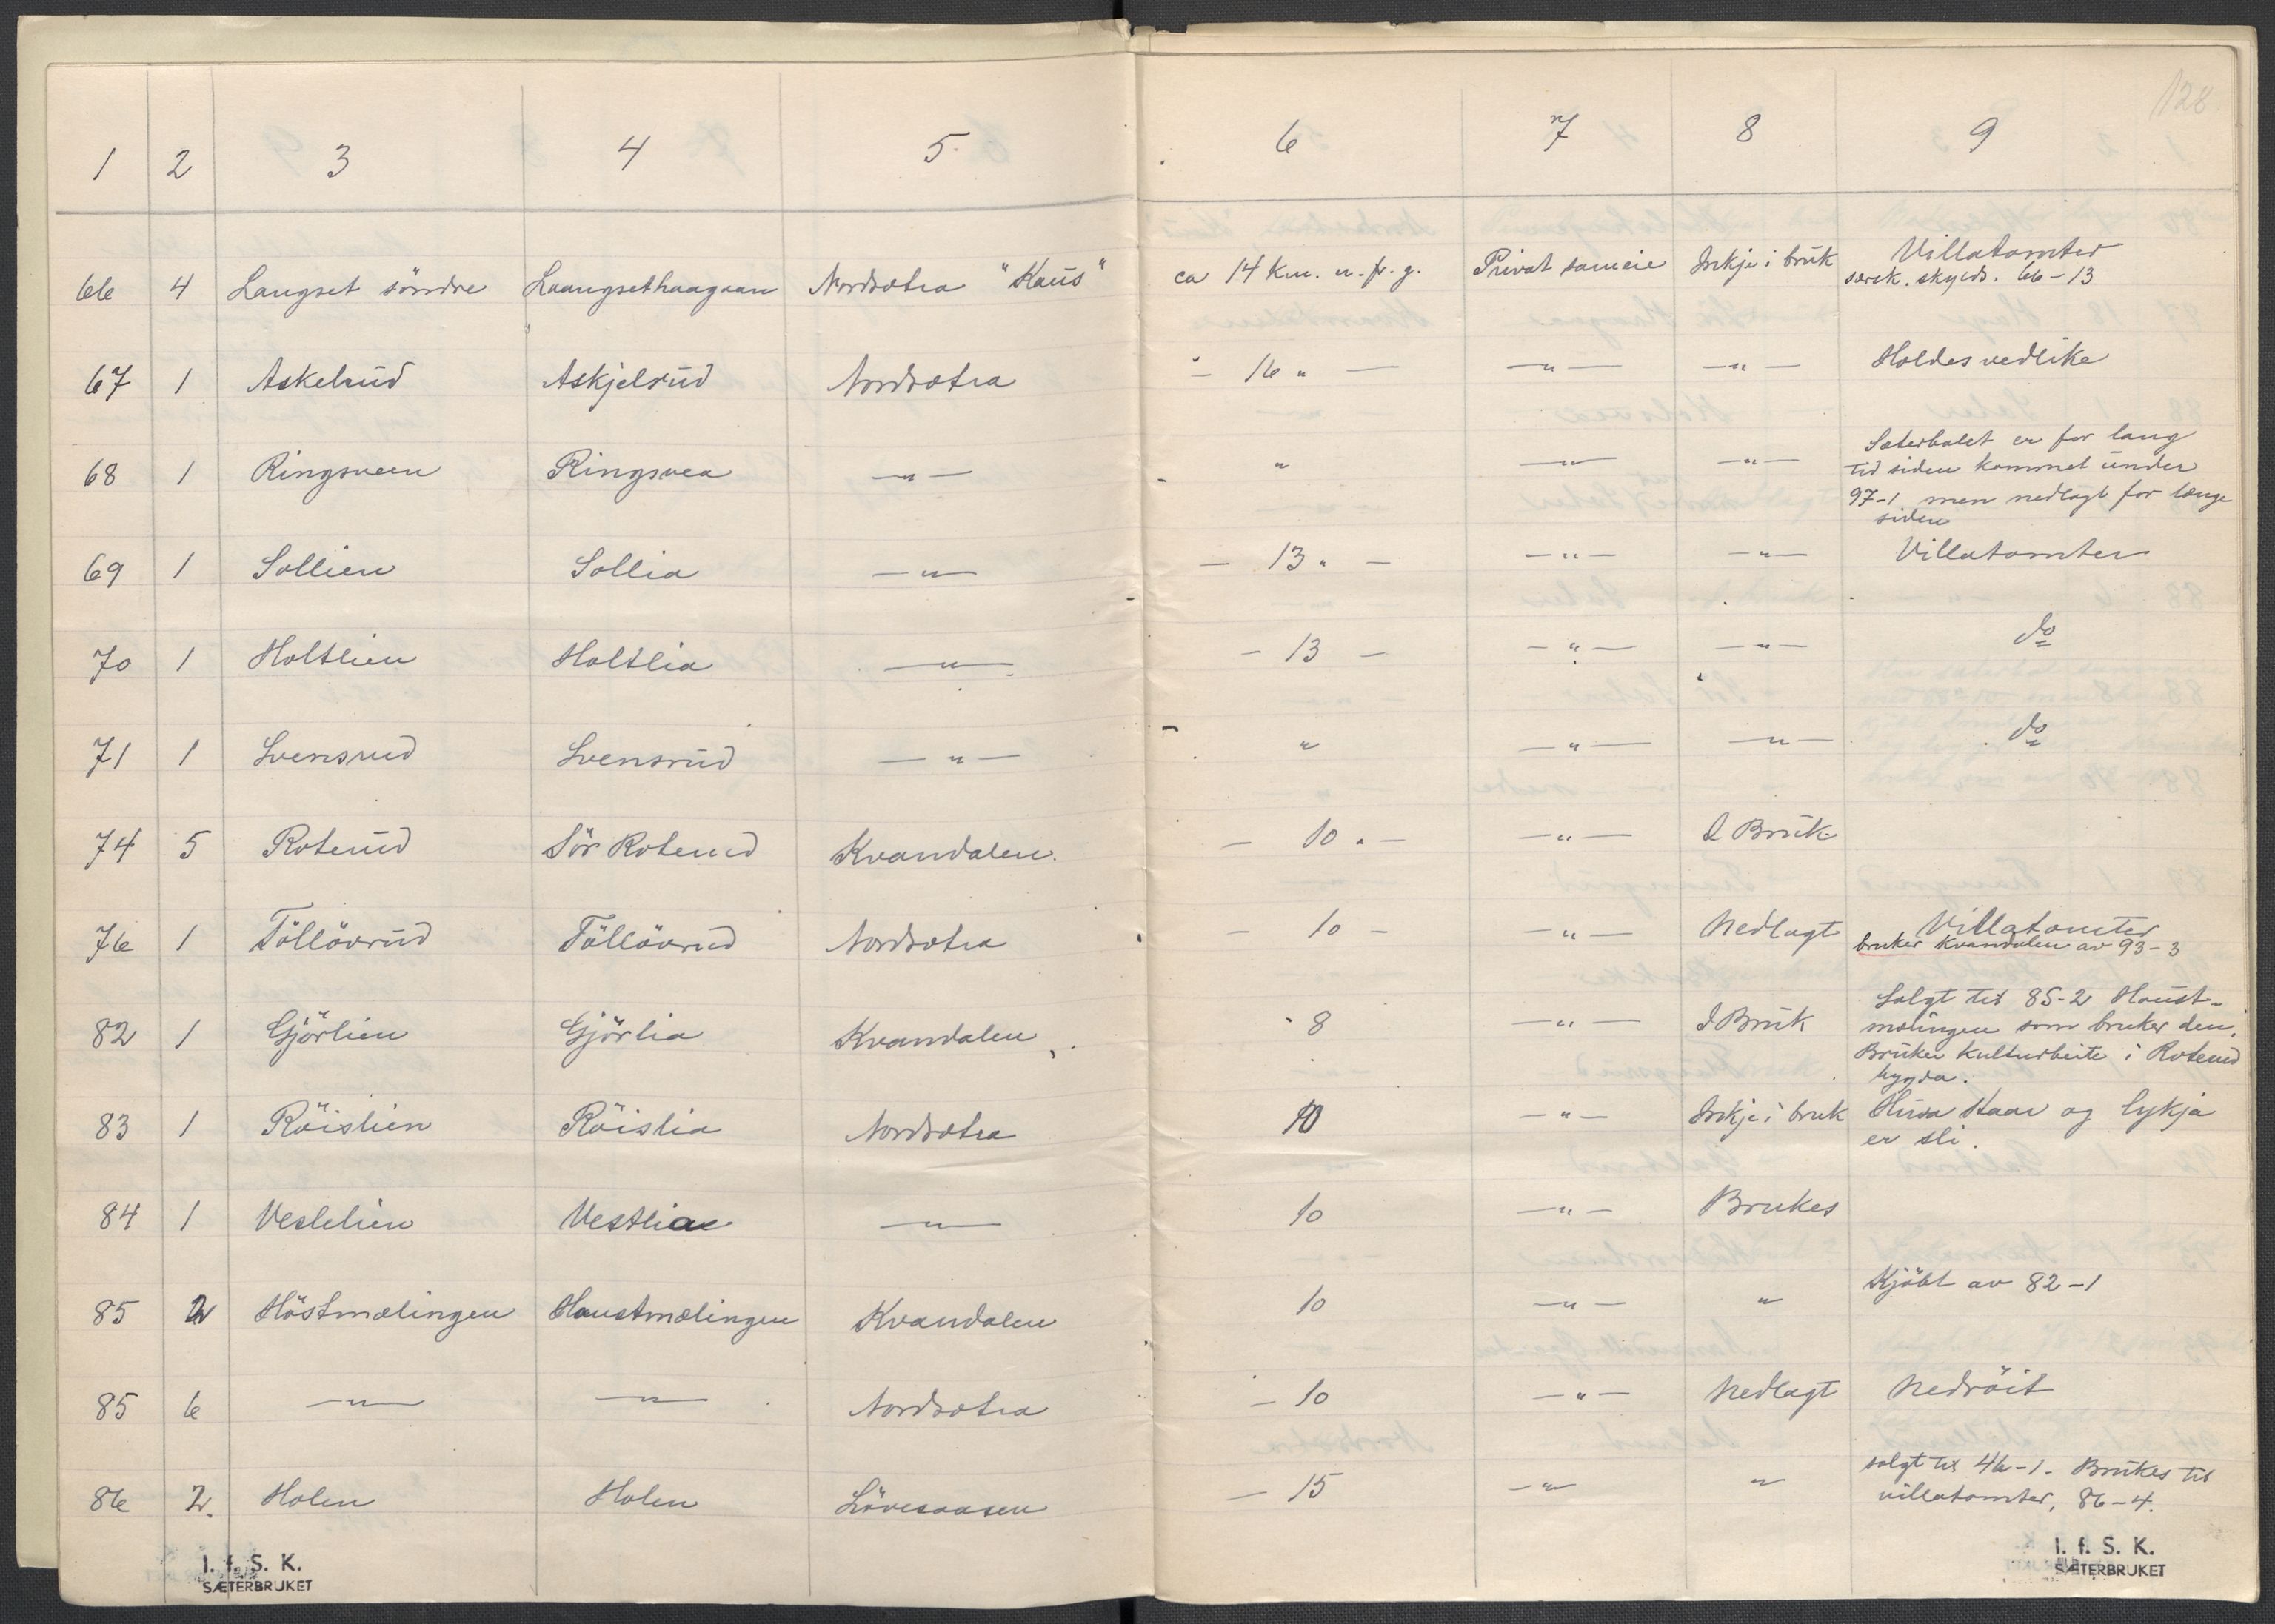 128
1 2 3 4 5 6 7 8 9
66 4 Langset söndre Laangsethaagaan Nordsætra "Haus" ca 14 km. n. fr. g. Privat sameie Inkje i bruk Villatomter
særsk. skylds. 66-13
67 1 Askelrud Askjelrud Nordsætra - 16 " — —"— —"— Holdes vedlike
68 1 Ringsveen Ringsvea —"— - " —"— —"— Sæterbolet er for lang
tid siden kommet under
97-1 men nedlagt for længe
siden
69 1 Sollien Sollia —"— — 13 " — —"— —"— Villatomter
70 1 Holtlien Holtlia —"— — 13 — —"— —"— do
71 1 Svensrud Svensrud —"— - " —"— —"— do
74 5 Roterud Sör Roterud Kvandalen — 10 " — —"— I Bruk
76 1 Töllövrud Töllövrud Nordsætra — 10 — —"— Nedlagt Villatomter
bruker Kvandalen av 93-3
82 1 Gjörlien Gjörlia Kvandalen - 8 —"— I Bruk Solgt til 85-2 Haust-
mælingen som bruker den.
Bruker kulturbeite i Roterud
bygda.
83 1 Röislien Röislia Nordsætra 10 —"— Inkje i bruk Husa staar og lykja
er sli.
84 1 Veslelien Vestlia —"— 10 —"— Brukes
85 2 Höstmælingen Haustmælingen Kvandalen 10 —"— " Kjöbt av 82-1
85 6 —"— —"— Nordsætra — 10 —"— Nedlagt Nedröit
86 2. Holen Holen Lövesaasen — 15 —"— " solgt til 46-1. Brukes til
villatomter, 86-4.
I. f. S. K.
SÆTERBRUKET
I. f. S. K.
SÆTERBRUKET